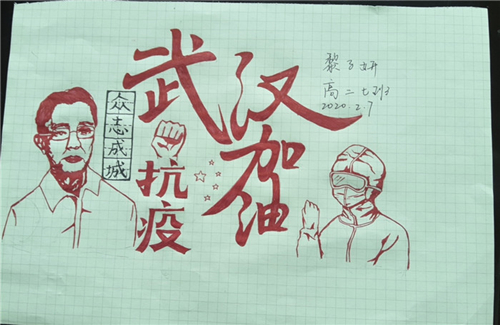 武汉加油
众志成城
抗疫
黎子妍
高二七班
2020.2.7